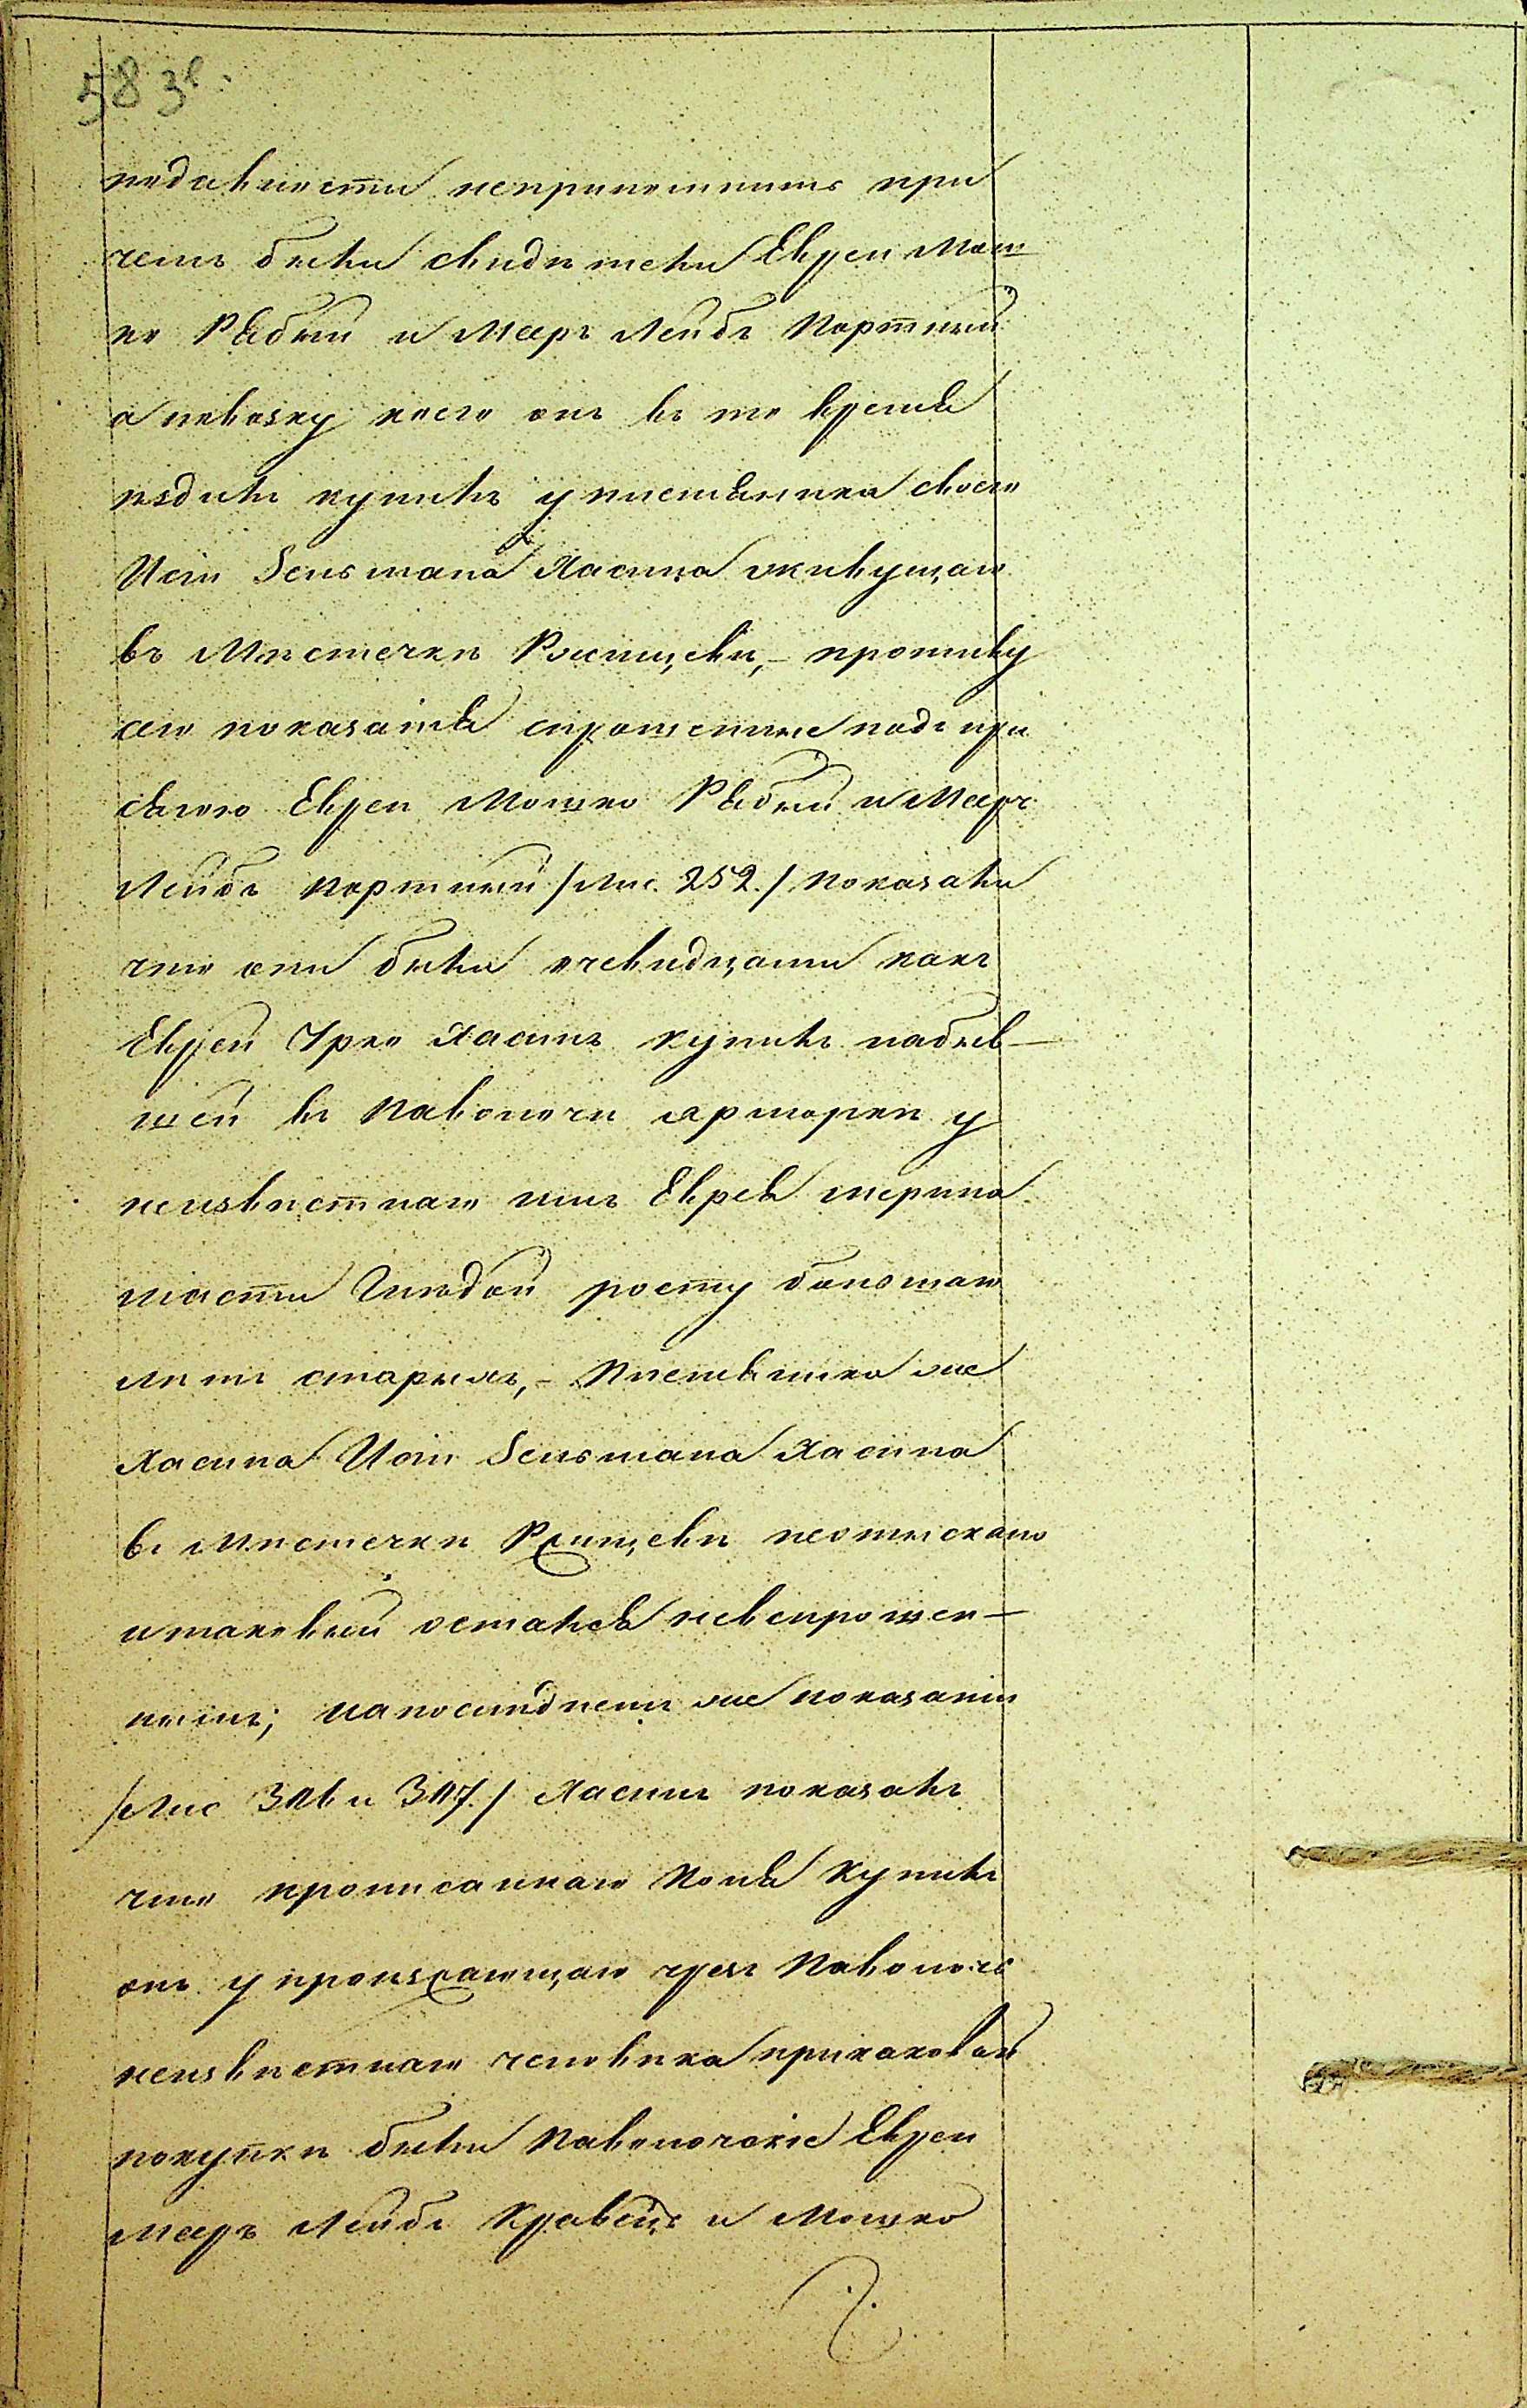 583.
недавности неприпомнитъ при
чемъ были свидѣтели Евреи Мош
ко Рабый и Меаръ Лейбъ Портный
а повозку коею онъ въ то время
ѣздилъ купилъ у племянника своего
Іося Зельмана Хасина живущаго
въ Мѣстечкѣ Ржищевѣ,- противу
сего показанія спрошенные подъ при
сягою Евреи Мошко Рябый и Меаръ
Лейбъ Портный /лис. 252./ показали
что они были очевидцами какъ
Еврей Ур​ко Хасинъ купилъ набыв-
шей въ Паволочи ярморкѣ у
неизвѣстнаго имъ Еврея мерина
масти Гнѣдой росту большаго
лѣтъ старыхъ,- Племянника же
Хасина Іося Зельмана Хасина
въ Мѣстечкѣ Ржищевѣ неотискано
итаковый остался невспрошен-
нымъ; напослѣднемъ же показаніи
/лис 316 и 317./ Хасинъ показалъ
что прописаннаго Коня купилъ
онъ у произжающаго чрезъ Паволочь
неизвѣстнаго человѣка прикаковой
покупкѣ были Паволочскіе Евреи
Меаръ Лейбъ Кравецъ и Мошко